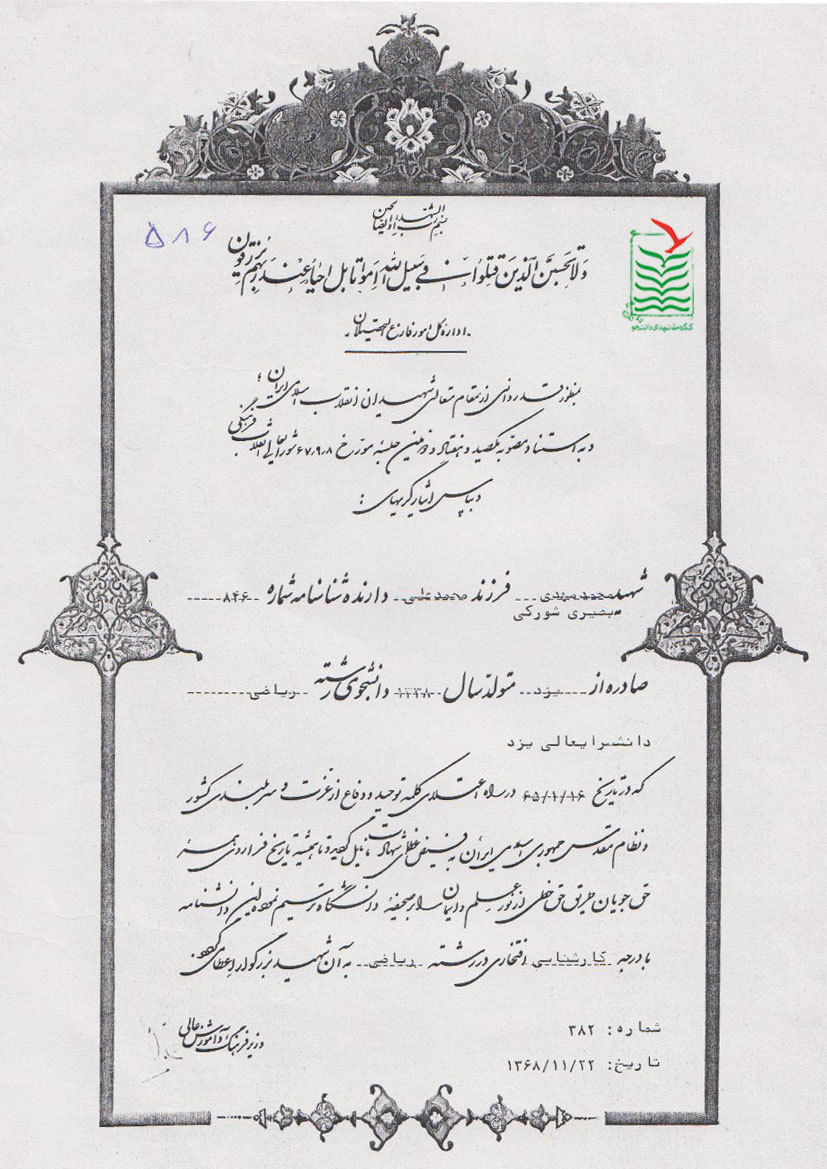 بسم رب الشهداء والصالحین
۵۸۶
ولا تحسبن الذین قتلوا فی سبیل الله امواتا بل احیاء عند ربهم یرزقون
کنگره شهدای دانشجو
اداره کل امور فارغ التحصیلان
بمنظور قدردانی از مقام متعالی شهیدان انقلاب اسلامی ایران؛
و به استناد مصوبه یکصد و هفتاد و دومین جلسه مورخ ۶۷/۹/۸ شورایعالی انقلاب فرهنگی
و بپاس ایثارگریهای:
شهید محمد مهدی فرزند محمد علی دارنده شناسنامه شماره ۸۴۶
بصیری شورکی
صادره از یزد متولد سال ۱۳۳۸ دانشجوی رشته ریاضی
دانشسرایعالی یزد
که در تاریخ ۶۵/۱/۱۶ در راه اعتلای کلمه توحید و دفاع از عزت و سربلندی کشور
و نظام مقدس جمهوری اسلامی ایران به فیض عظمای شهادت نایل گردید و تا همیشه تاریخ فراروی همه
حق جویان طریق حق خطی از نور علم و ایمان را بر صحیفه دانشگاه ترسیم نمود این دانشنامه
با درجه کارشناسی افتخاری در رشته ریاضی به آن شهید بزرگوار اعطا می گردد.
شماره: ۳۸۲
تاریخ: ۱۳۶۸/۱۱/۲۲
وزیر فرهنگ و آموزش عالی